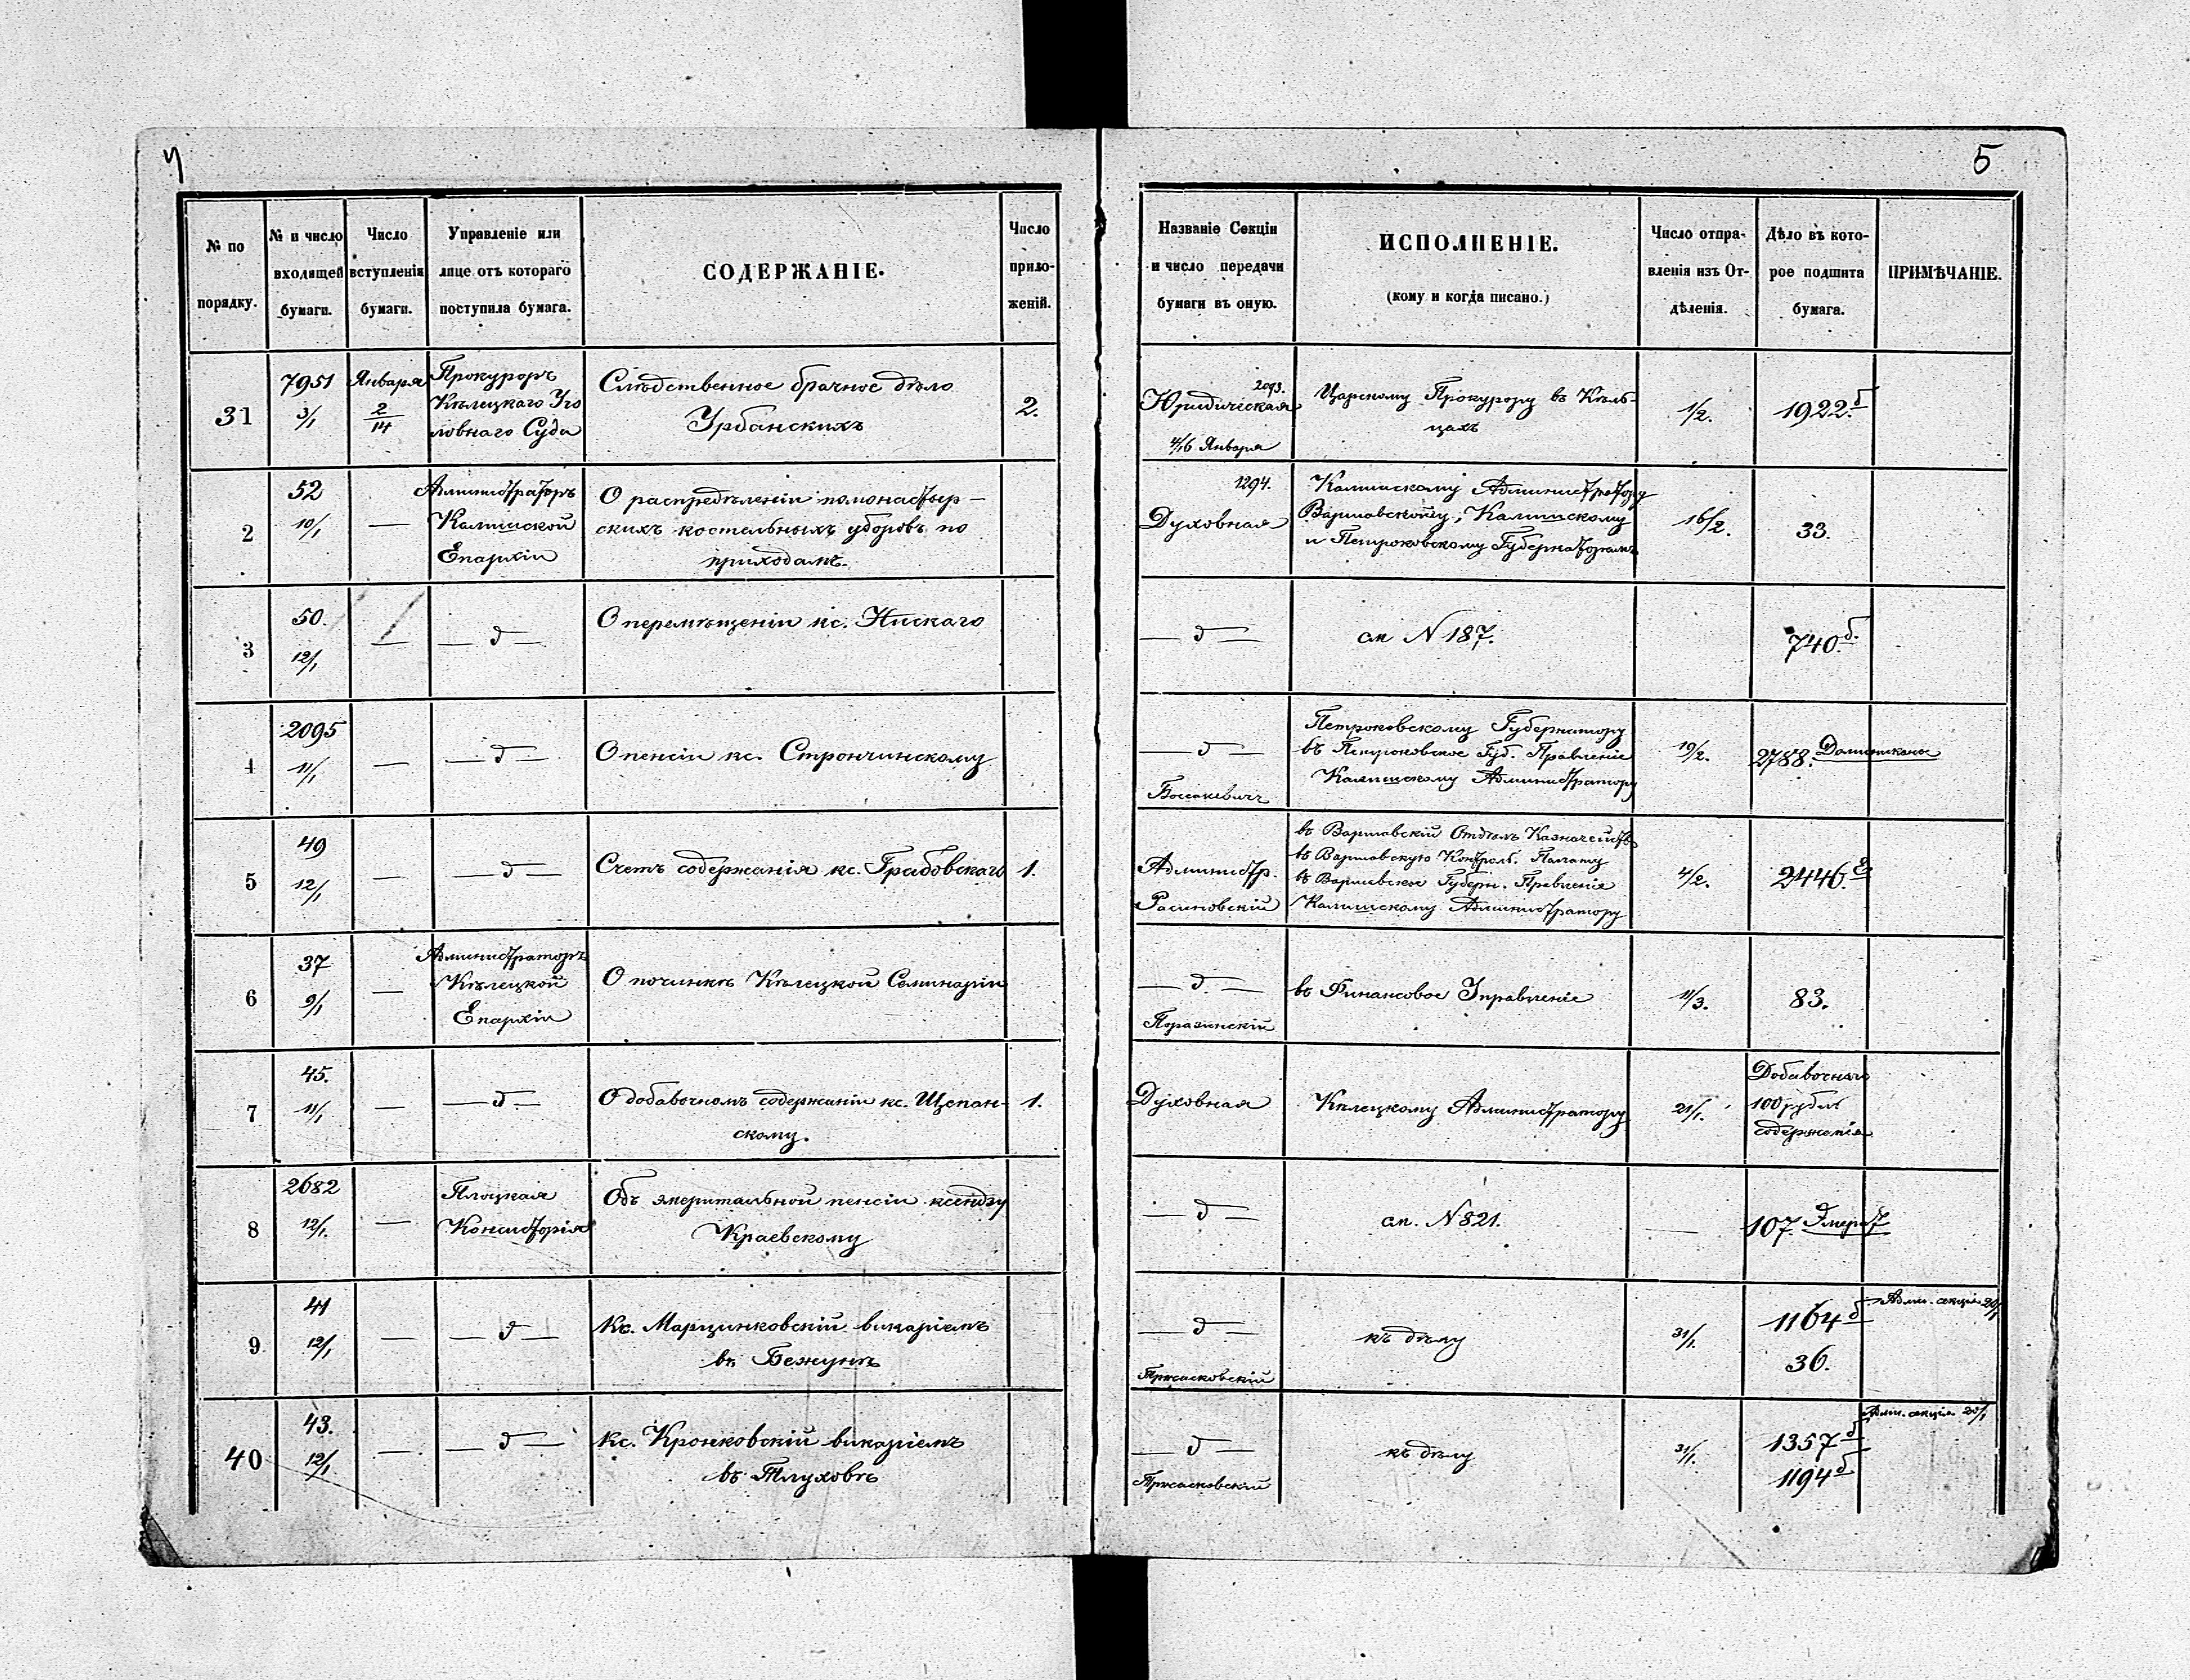 4
5
№ по порядку.
№ и число входящей бумаги.
Число вступленія бумаги.
Управленіе или лице отъ котораго поступила бумага.
СОДЕРЖАНІЕ.
Число приложеній.
Названіе Секціи и число передачи бумаги въ оную.
ИСПОЛНЕНІЕ.
(кому и когда писано.)
Число отправленія изъ Отдѣленія.
Дѣло въ которое подшита бумага.
ПРИМѢЧАНІЕ.
31
7951
3/1
Января
2/14
Прокуроръ
Кѣлецкаго Уго
ловнаго Суда
Слѣдственное брачное дѣло
Урбанскихъ
2.
2093.
Юридическая
4/16 Января
Царскому Прокурору въ Кѣль-
цахъ
1/2.
1922.б
2
52
10/1
—
Администраторъ
Калишской
Епархіи
О распредѣленіи помонастыр-
скихъ костельныхъ уборовъ по
приходамъ.
1294.
Духовная
Калишскому Администратору
Варшавскому, Калишскому
и Петроковскому Губернаторамъ
16/2.
33.
3
50.
12/1
—
— д —
О перемѣщеніи кс. Нискаго
— д —
см N 187.
740.б.
4
2095
11/1
—
— д —
О пенсіи кс. Стрончинскому
— д —
Петроковскому Губернатору
въ Петроковское Губ. Правленіе
Калишскому Администратору
19/2.
2788.
5
49
12/1
—
— д —
Счетъ содержанія кс. Грабовскаго
1.
Администр.
въ Варшавскій Отдѣлъ Казначейства
въ Варшавскую Контрол. Палату
въ Варшавское Губерн. Правленіе
Калишскому Администратору
4/2.
2446.
6
37
9/1
—
Администраторъ
Кѣлецкой
Епархіи
О починкѣ Кѣлецкой Семинаріи
— д —
Поразинскій
въ Финансовое Управленіе
11/3.
83.
7
45.
11/1
—
— д —
О добавочномъ содержаніи кс. Щепан-
скому.
1.
Духовная
Кѣлецкому Администратору
21/1.
100 рубл
содержанія
8
2682
12/1.
—
Плоцкая
Консисторія
Объ эмеритальной пенсіи ксендзу
Краевскому
— д —
см. N 821.
—
107. Эмерит
9
41
12/1
—
— д —
Кс. Марцинковскій викаріемъ
въ Бежунѣ
— д —
къ дѣлу
31/1.
1164 б
36.
Адми. секція 20/1
40
43.
12/1
—
— д —
Кс. Кронковскій викаріемъ
въ Тлуховѣ
— д —
къ дѣлу
31/1.
1357 б
1194 б
Адми. секція 20/1